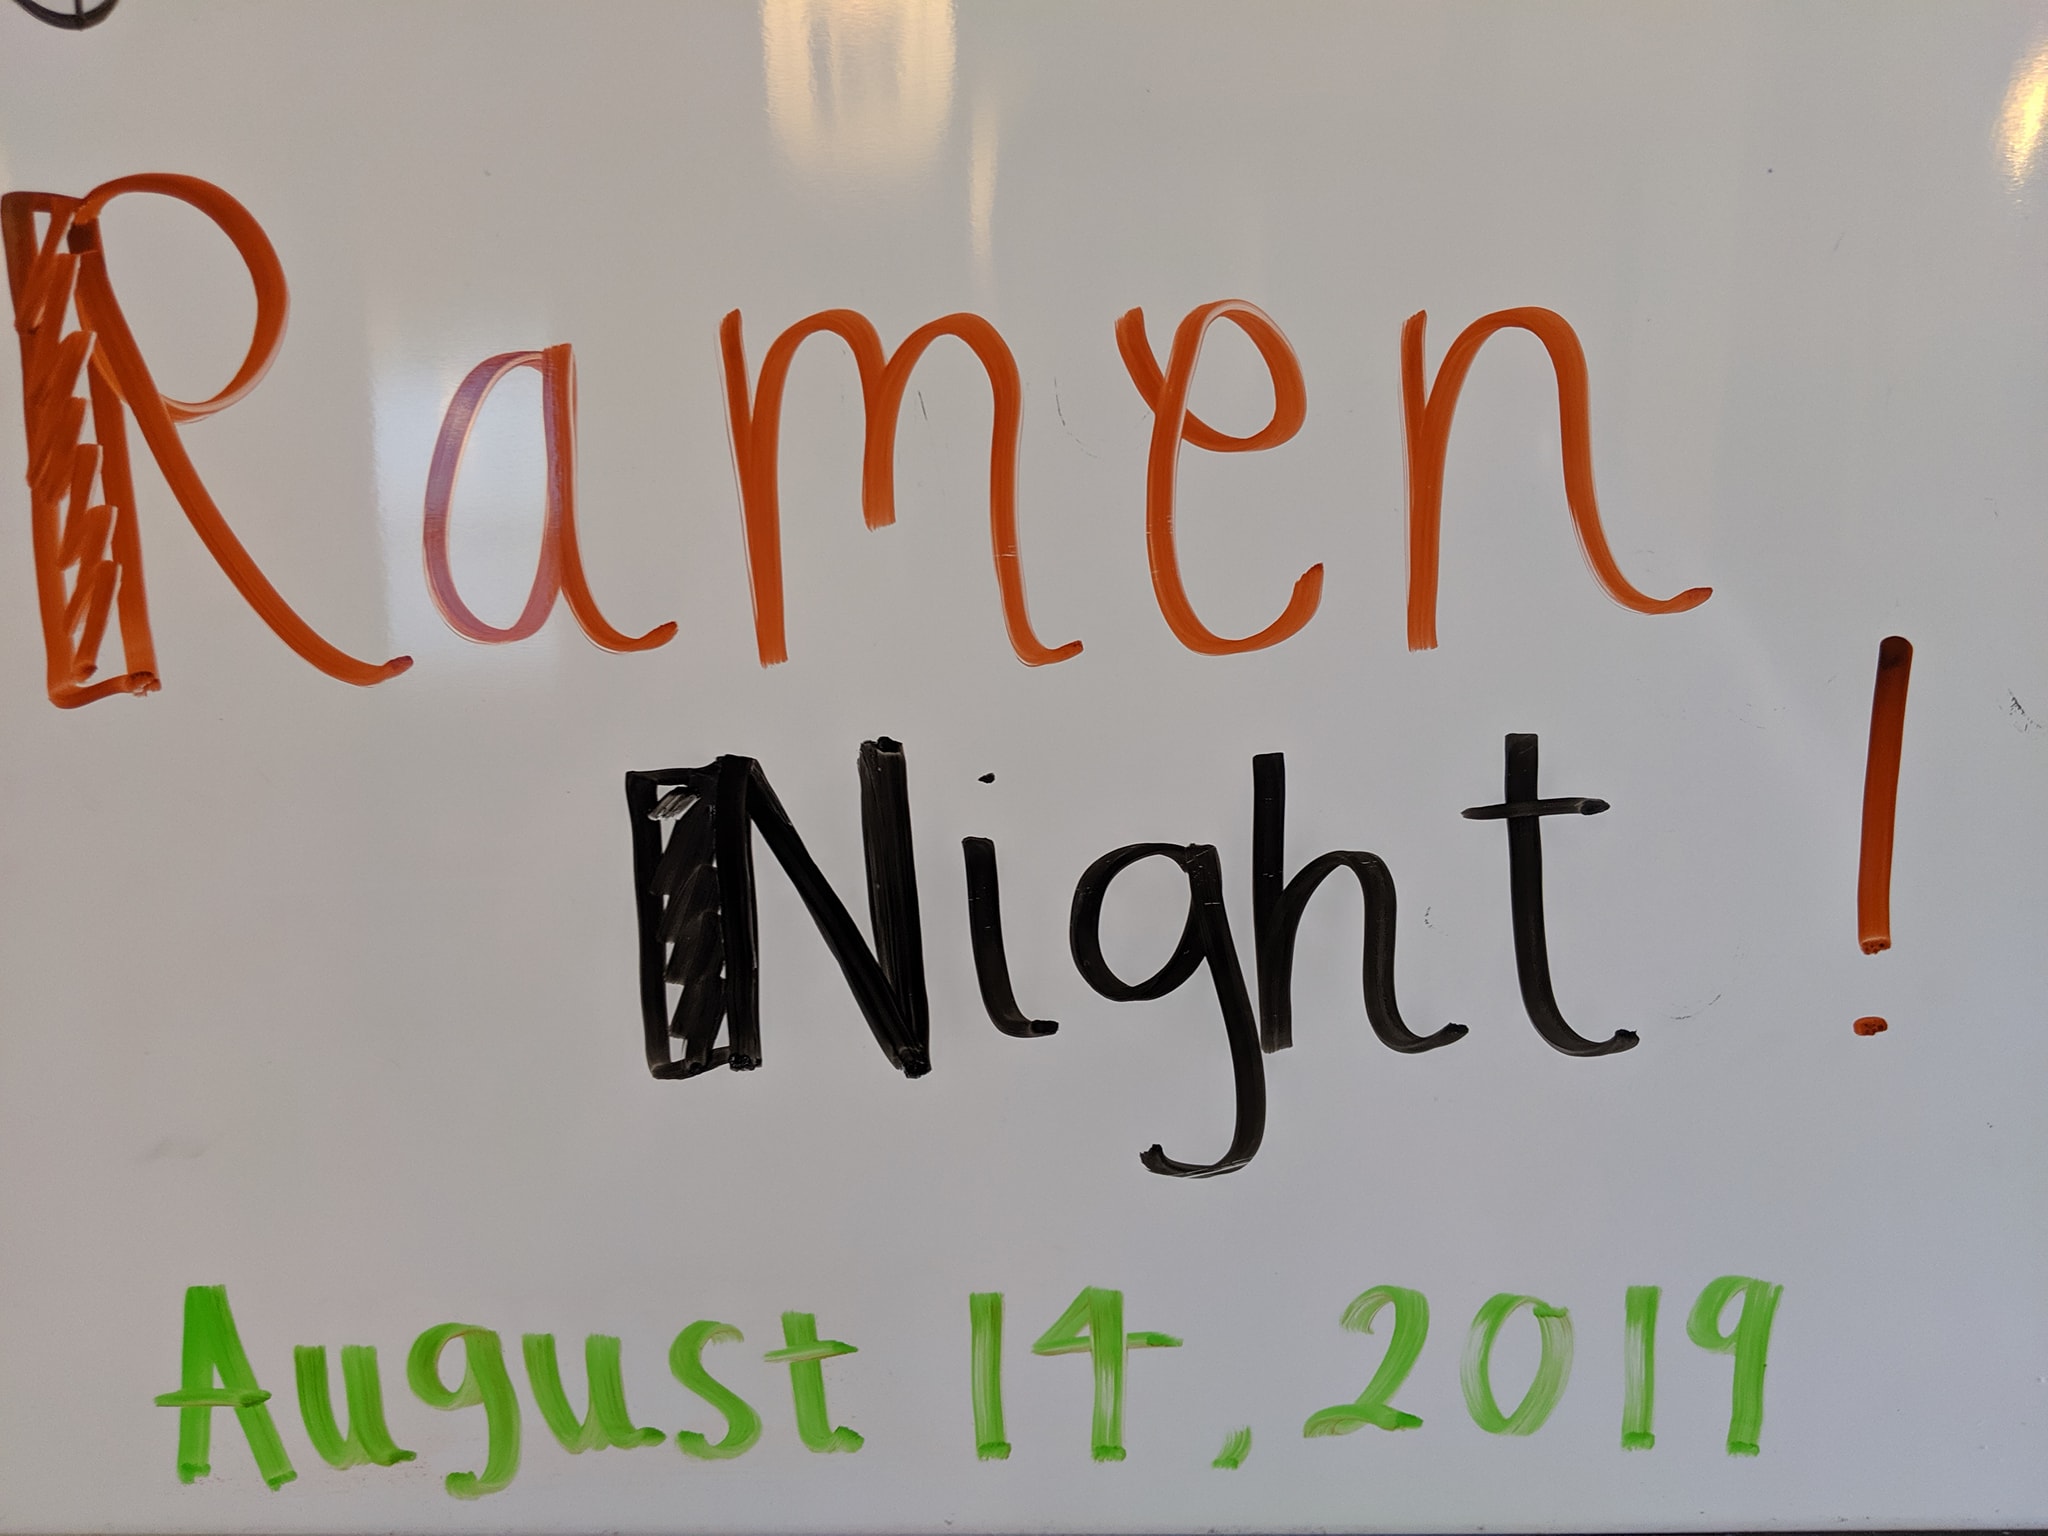 Ramen
Night!
August 14, 2019